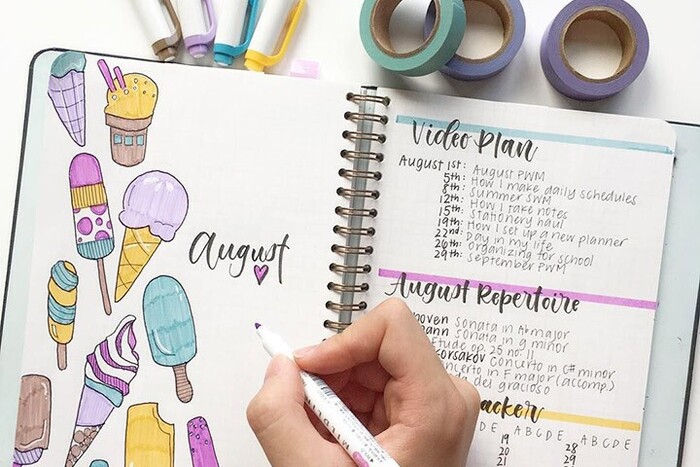 August
Video Plan
August 1st: August PWM
5th: How I make daily schedules
8th: Summer SWM
12th: How I take notes
15th: Stationery haul
19th: How I set up a new planner
22nd: Day in my life
26th: Organizing for school
29th: September PWM
August Repertoire
hoven Sonata in Ab major
mann Sonata in g minor
Etude op. 25 no. 11
korsakov Concerto in C# minor
oncerto in F major (accomp.)
da del gracioso
acker
D E A B C D E A B C D E
19 28
20 29
21